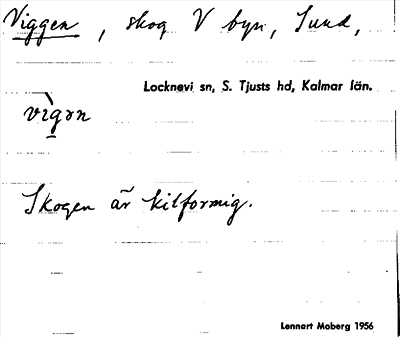 Viggen, skog V byn, Sund,
Locknevi sn, S. Tjusts hd, Kalmar län.
Skogen är kilformig.
Lennart Moberg 1956